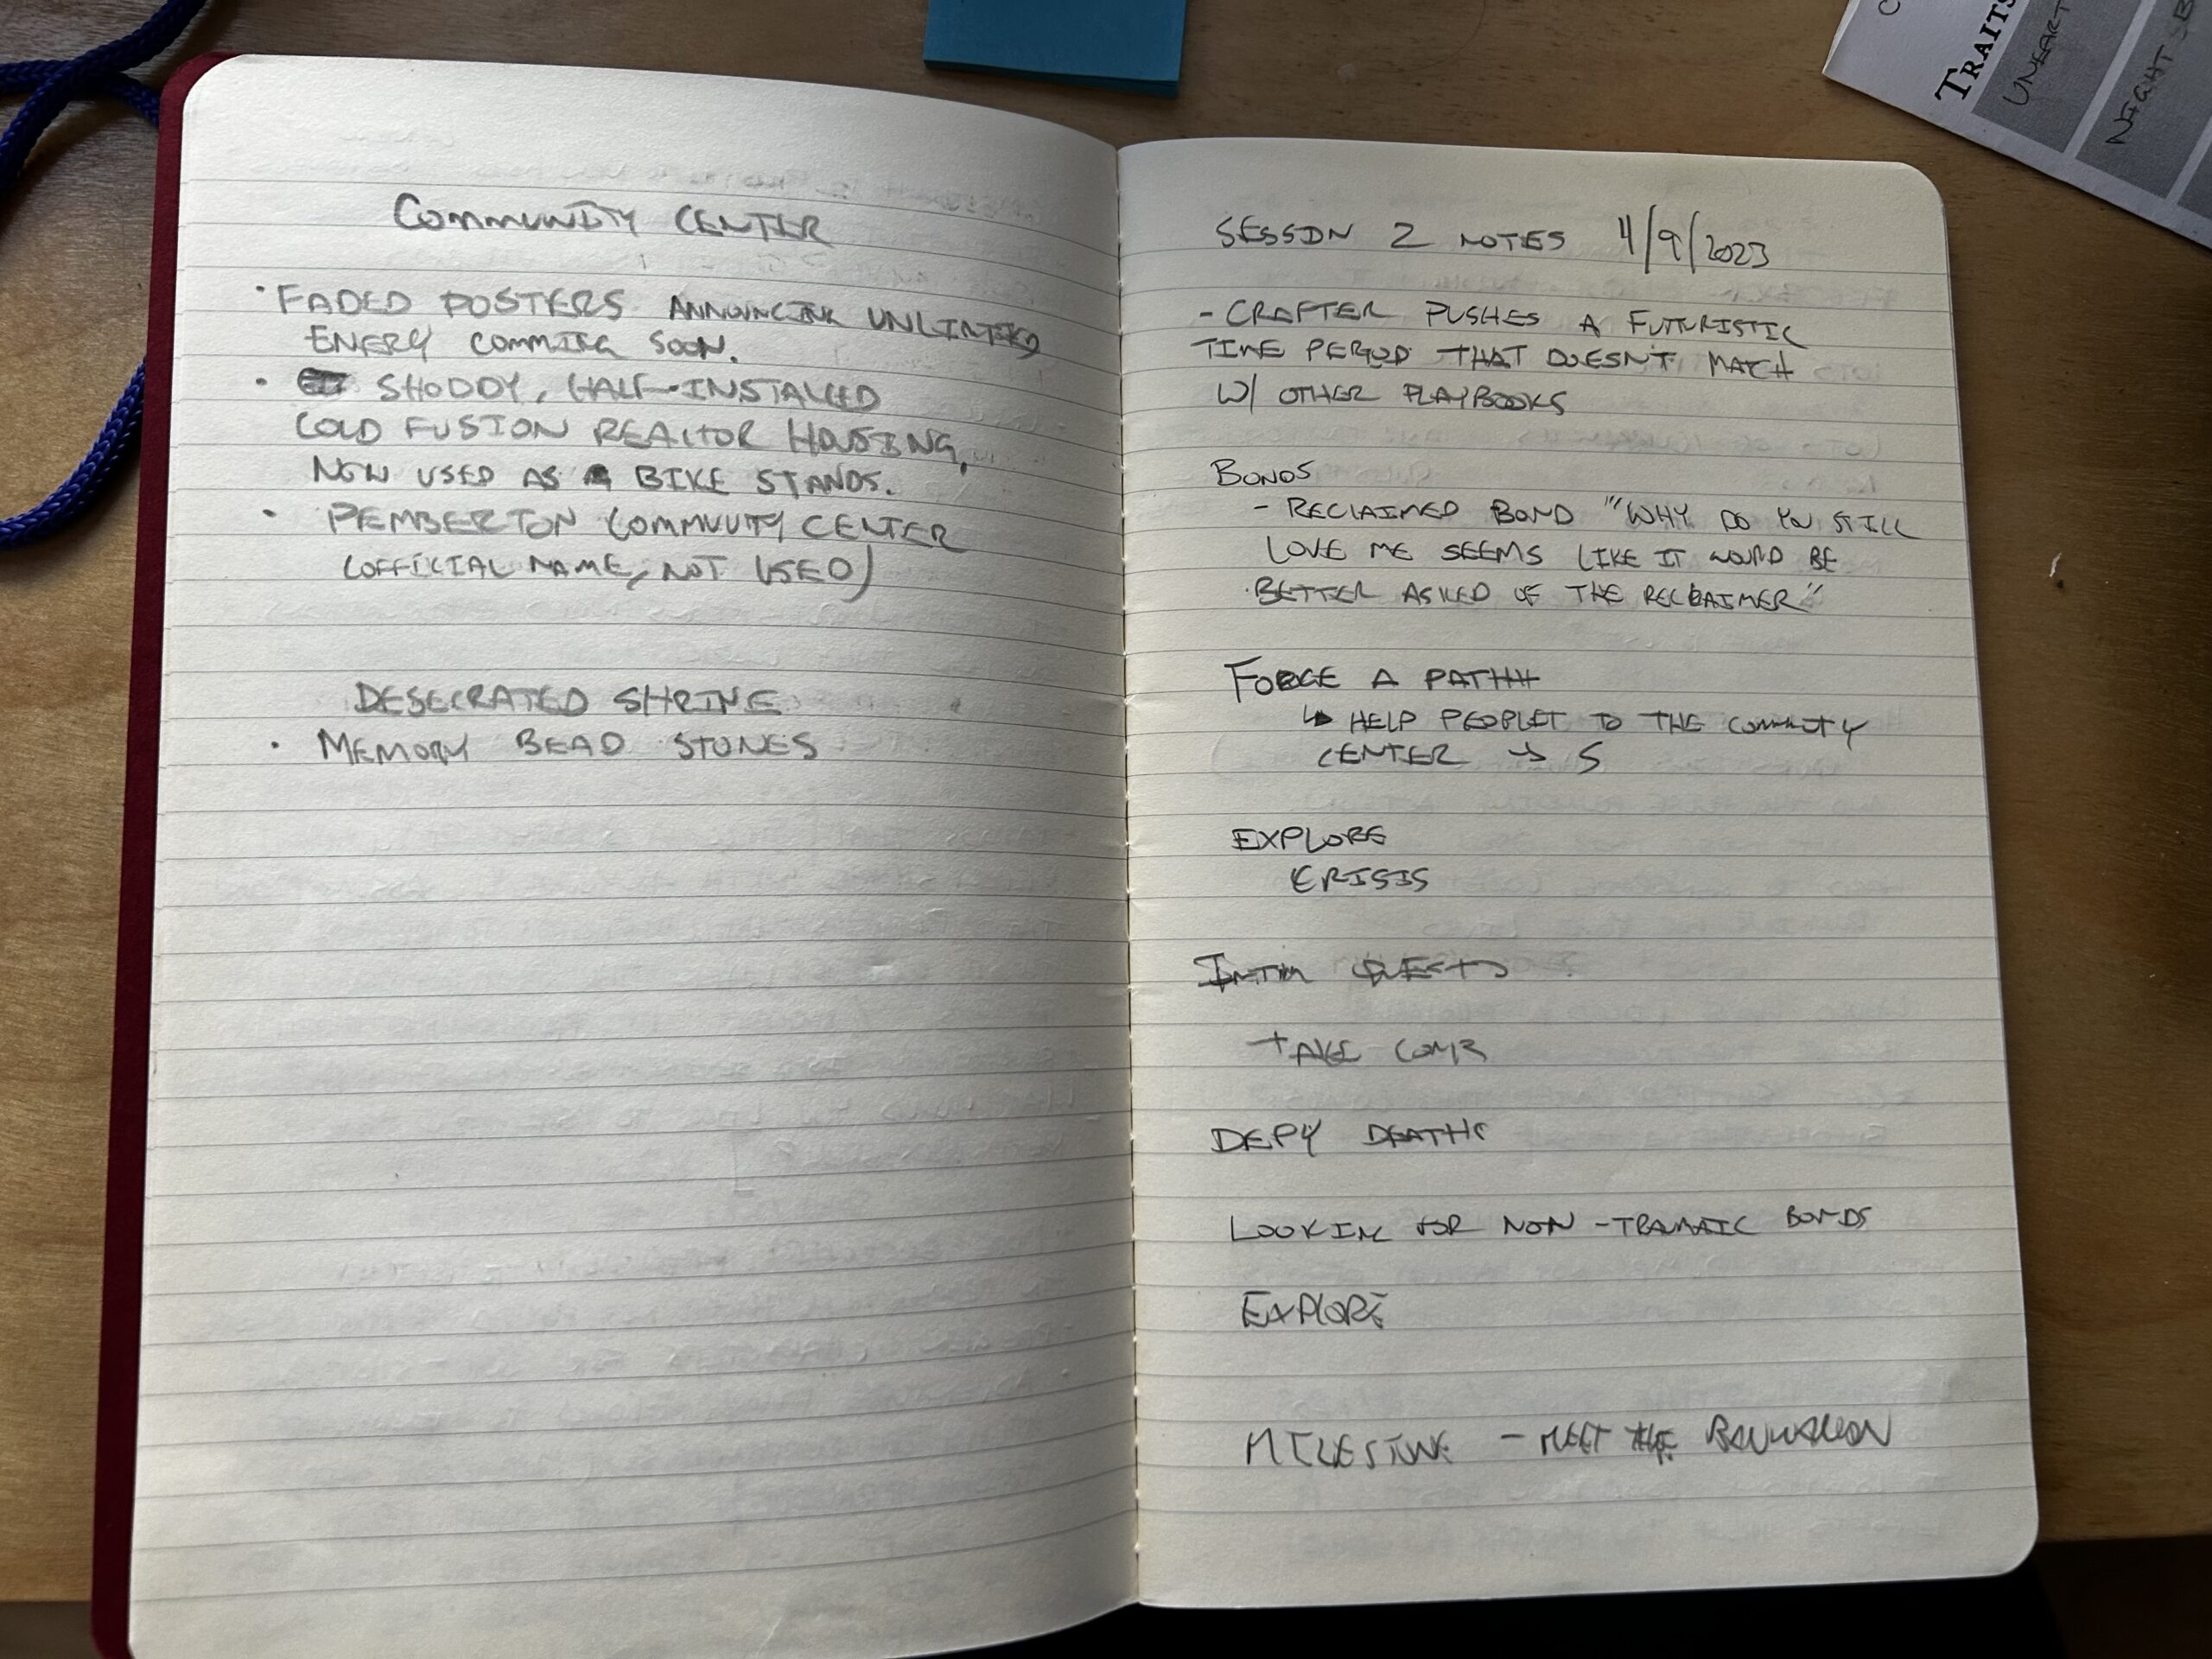 COMMUNITY CENTER
· FADED POSTERS ANNOUNCING UNLIMITED
ENERY COMMING SOON.
· SHODDY, HALF-INSTALLED
COLD FUSION REACTOR HOUSING,
NOW USED AS BIKE STANDS.
· PEMBERTON COMMUUITY CENTER
(OFFICIAL NAME, NOT USED)
DESECRATED SHRINE
· MEMORY BEAD STONES
SESSION 2 NOTES 4/9/2023
- CRAFTER PUSHES A FUTURISTIC
TIME PERIOD THAT DOESN'T MATCH
W/ OTHER PLAYBOOKS
BONDS
- RECLAIMED BOND "WHY DO YOU STILL
LOVE ME SEEMS LIKE IT WOULD BE
BETTER ASKED OF THE RECLAIMER"
FORGE A PATH
↳ HELP PEOPLE TO THE COMMUNITY
CENTER → 5
EXPLORE
CRISIS
QUESTS
TAKE
DEFY DEATH
LOOKING FOR NON-TRAMATIC BONDS
EXPLORE
MILESTONE - MEET THE
TRAITS
UNEART
NIGHT